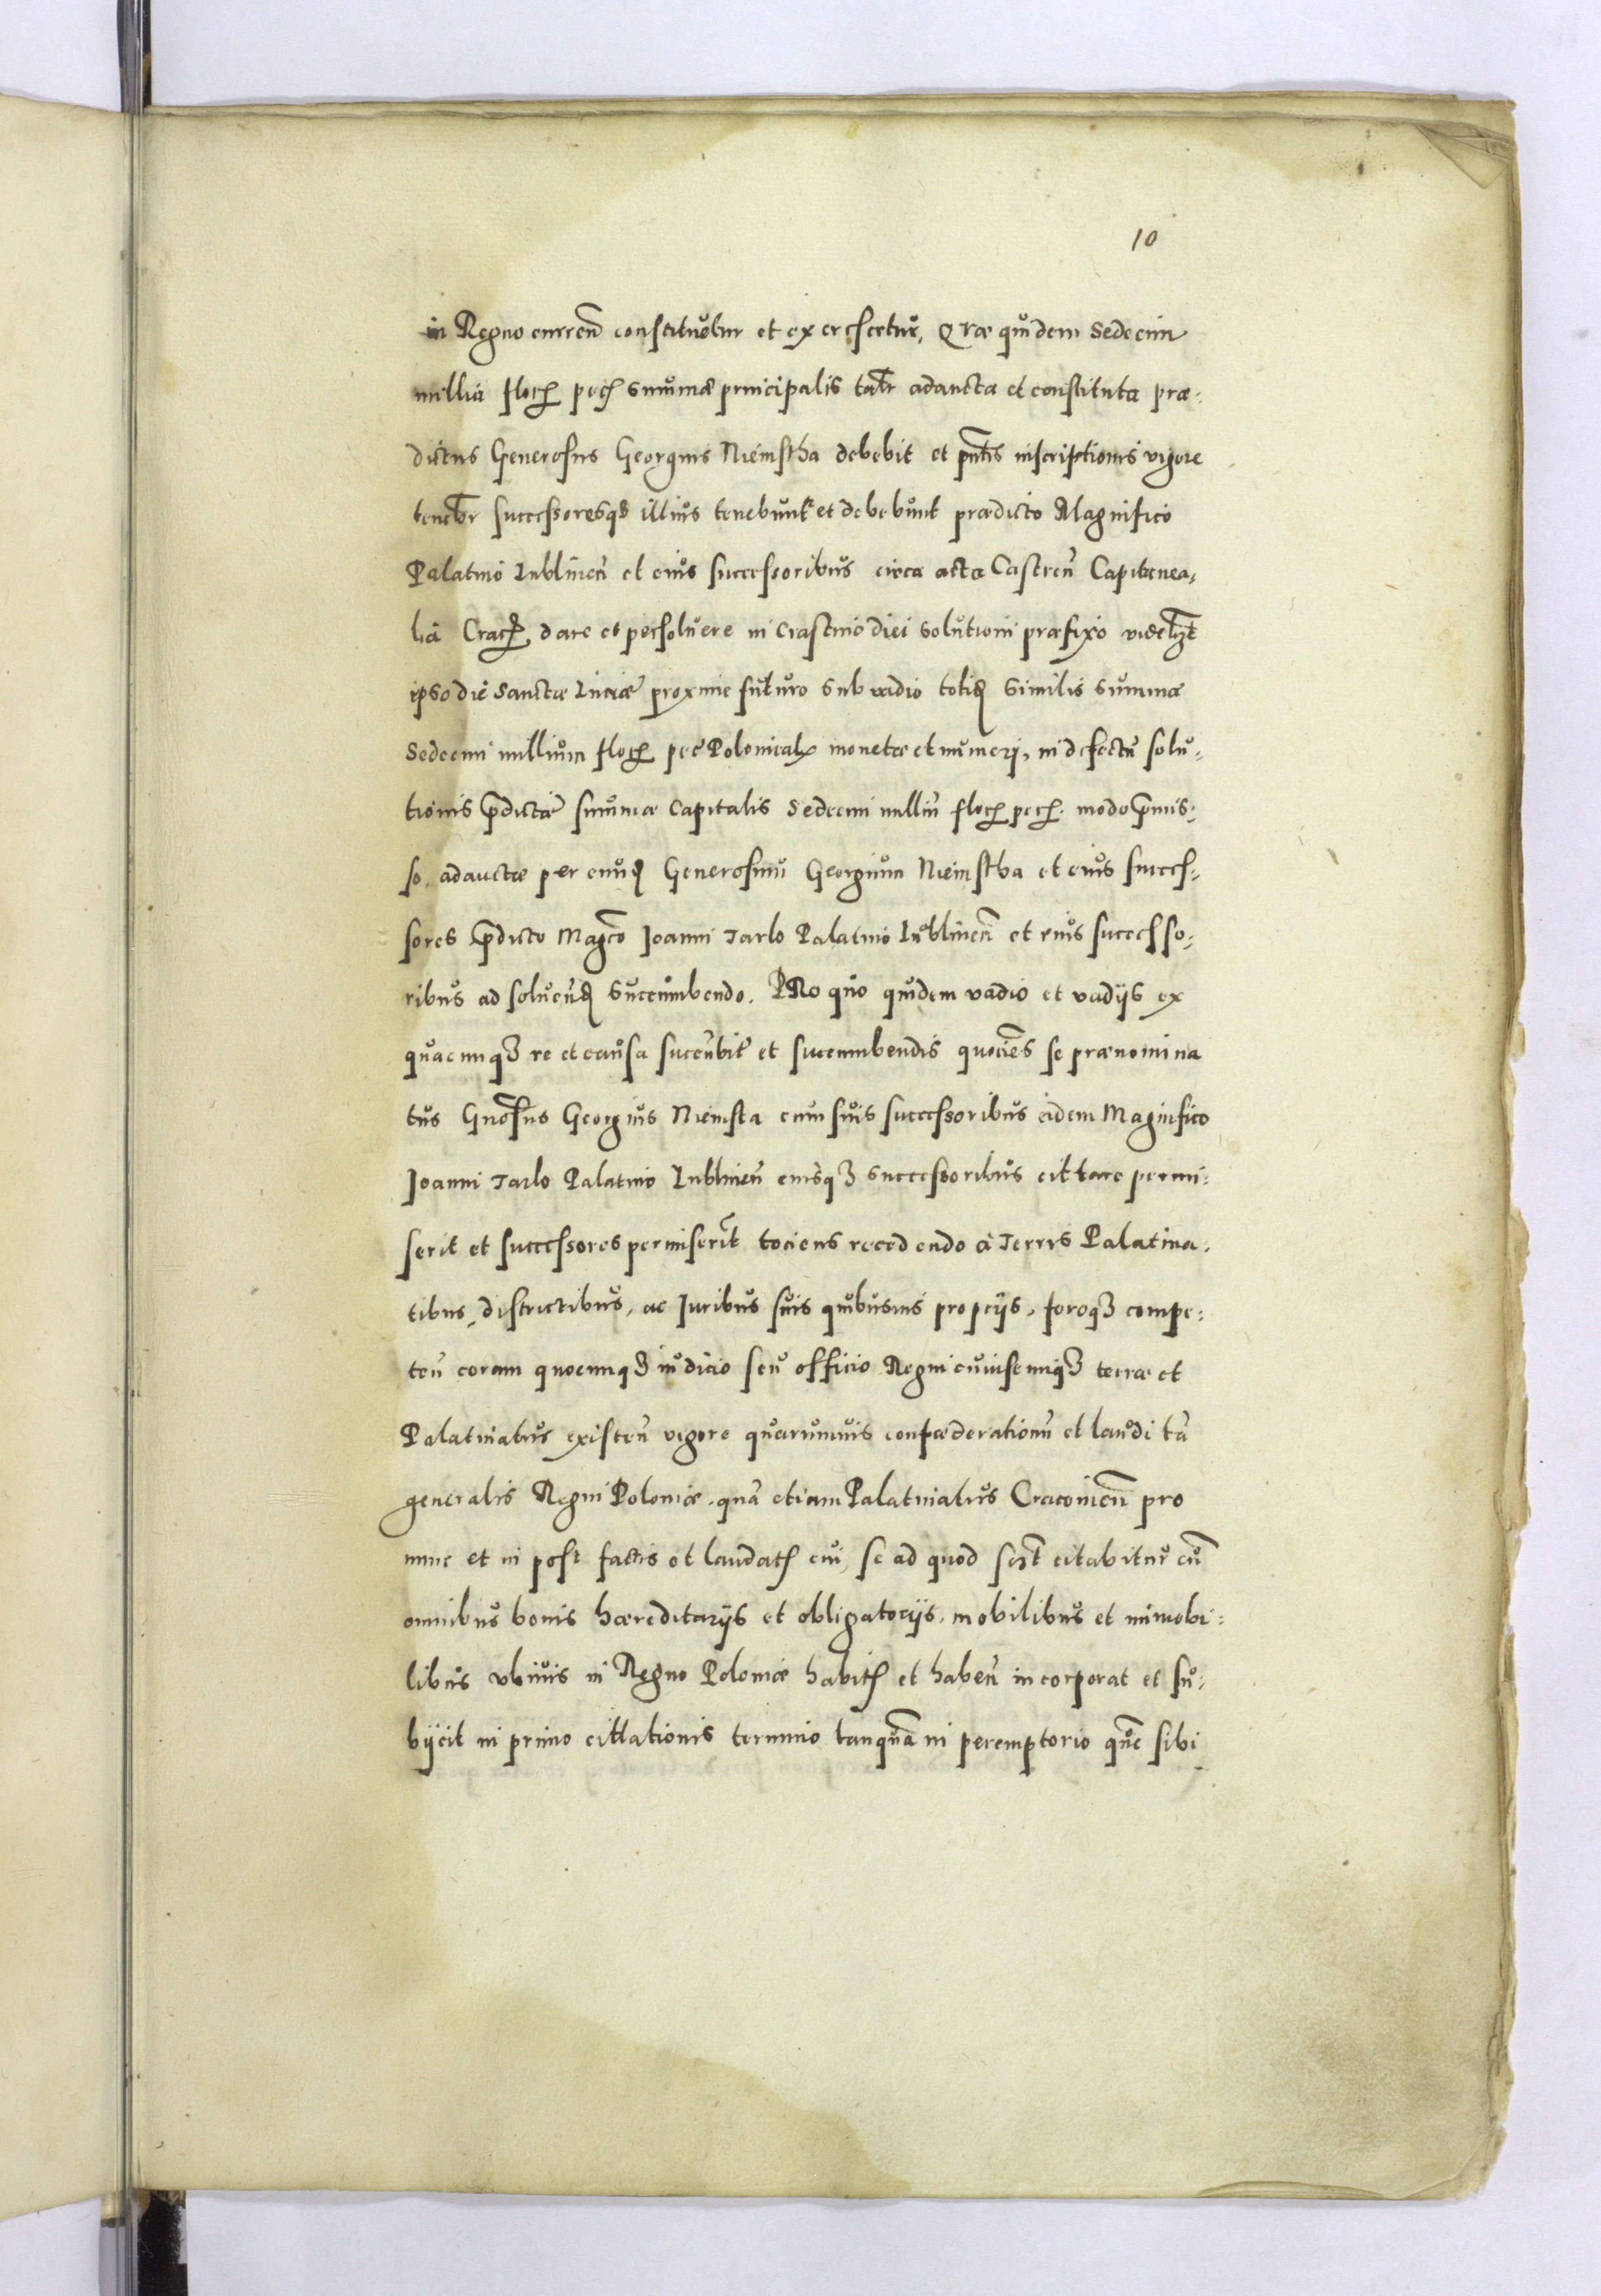 10
in Regno curren̄ constituetur et excrescetur, Quæ quidem Sedecim
millia floꝝ pecꝭ summæ principalis tal̄r adaucta et constituta præ-
dictus Generosus Georgius Niemstha debebit et pn̄tis inscriptionis vigore
tenebr̄ successoresqꝫ illius tenebunt et debebunt prædicto Magnifico
Palatino Lublinen̄ et eius successoribus circa acta Castren̄ Capitanea-
lia Cracꝫ dare et persoluere in Crastino diei solutioni præfixo videlꝫt
ipso die Sanctæ Luciæ proxime futuro sub vadio totidꝫ similis summæ
Sedecim millium floꝝ pec̄ Polonicalꝭ monetæ et numeri, in defectu solu-
tionis p̄dictæ summæ Capitalis Sedecim milliū floꝝ pecꝭ. modo p̄mis-
so adauctæ per eundꝫ Generosum Georgium Niemstha et eius succes-
sores p̄dicto Magco Joanni Tarlo Palatino Lublinen̄ et eius successo-
ribus ad soluendꝫ succumbendo. PRo quo quidem vadio et vadijs ex
quacunqꝫ re et causa succubit̄ et succumbendis quocies se prænomina
tus Gn̄osus Georgius Niemsta cum suis successoribus eidem Magnifico
Joanni Tarlo Palatino Lublinen̄ eiusqꝫ successoribus cittare permi-
serit et successores permiserīt tociens recedendo à Terris Palatina-
tibus, districtibus, ac Juribus suis quibusuis proprijs, foroqꝫ compe-
ten̄ coram quocunqꝫ iudicio seu officio Regni cuiuscunqꝫ terræ et
Palatinatus existen̄ vigore quarumuis confœderationū et laudi tā
generalis Regni Poloniæ, quā etiam Palatinatus Cracouien̄ pro
nunc et in post factis et laudatꝭ cui, se ad quod scꝫt citabitur cū
omnibus bonis hæreditarijs et obligatorijs, mobilibus et immobi-
libus vbiuis in Regno Poloniæ habitꝭ et haben̄ incorporat et su-
bijcit in primo cittationis termino tanquā in peremptorio quē sibi